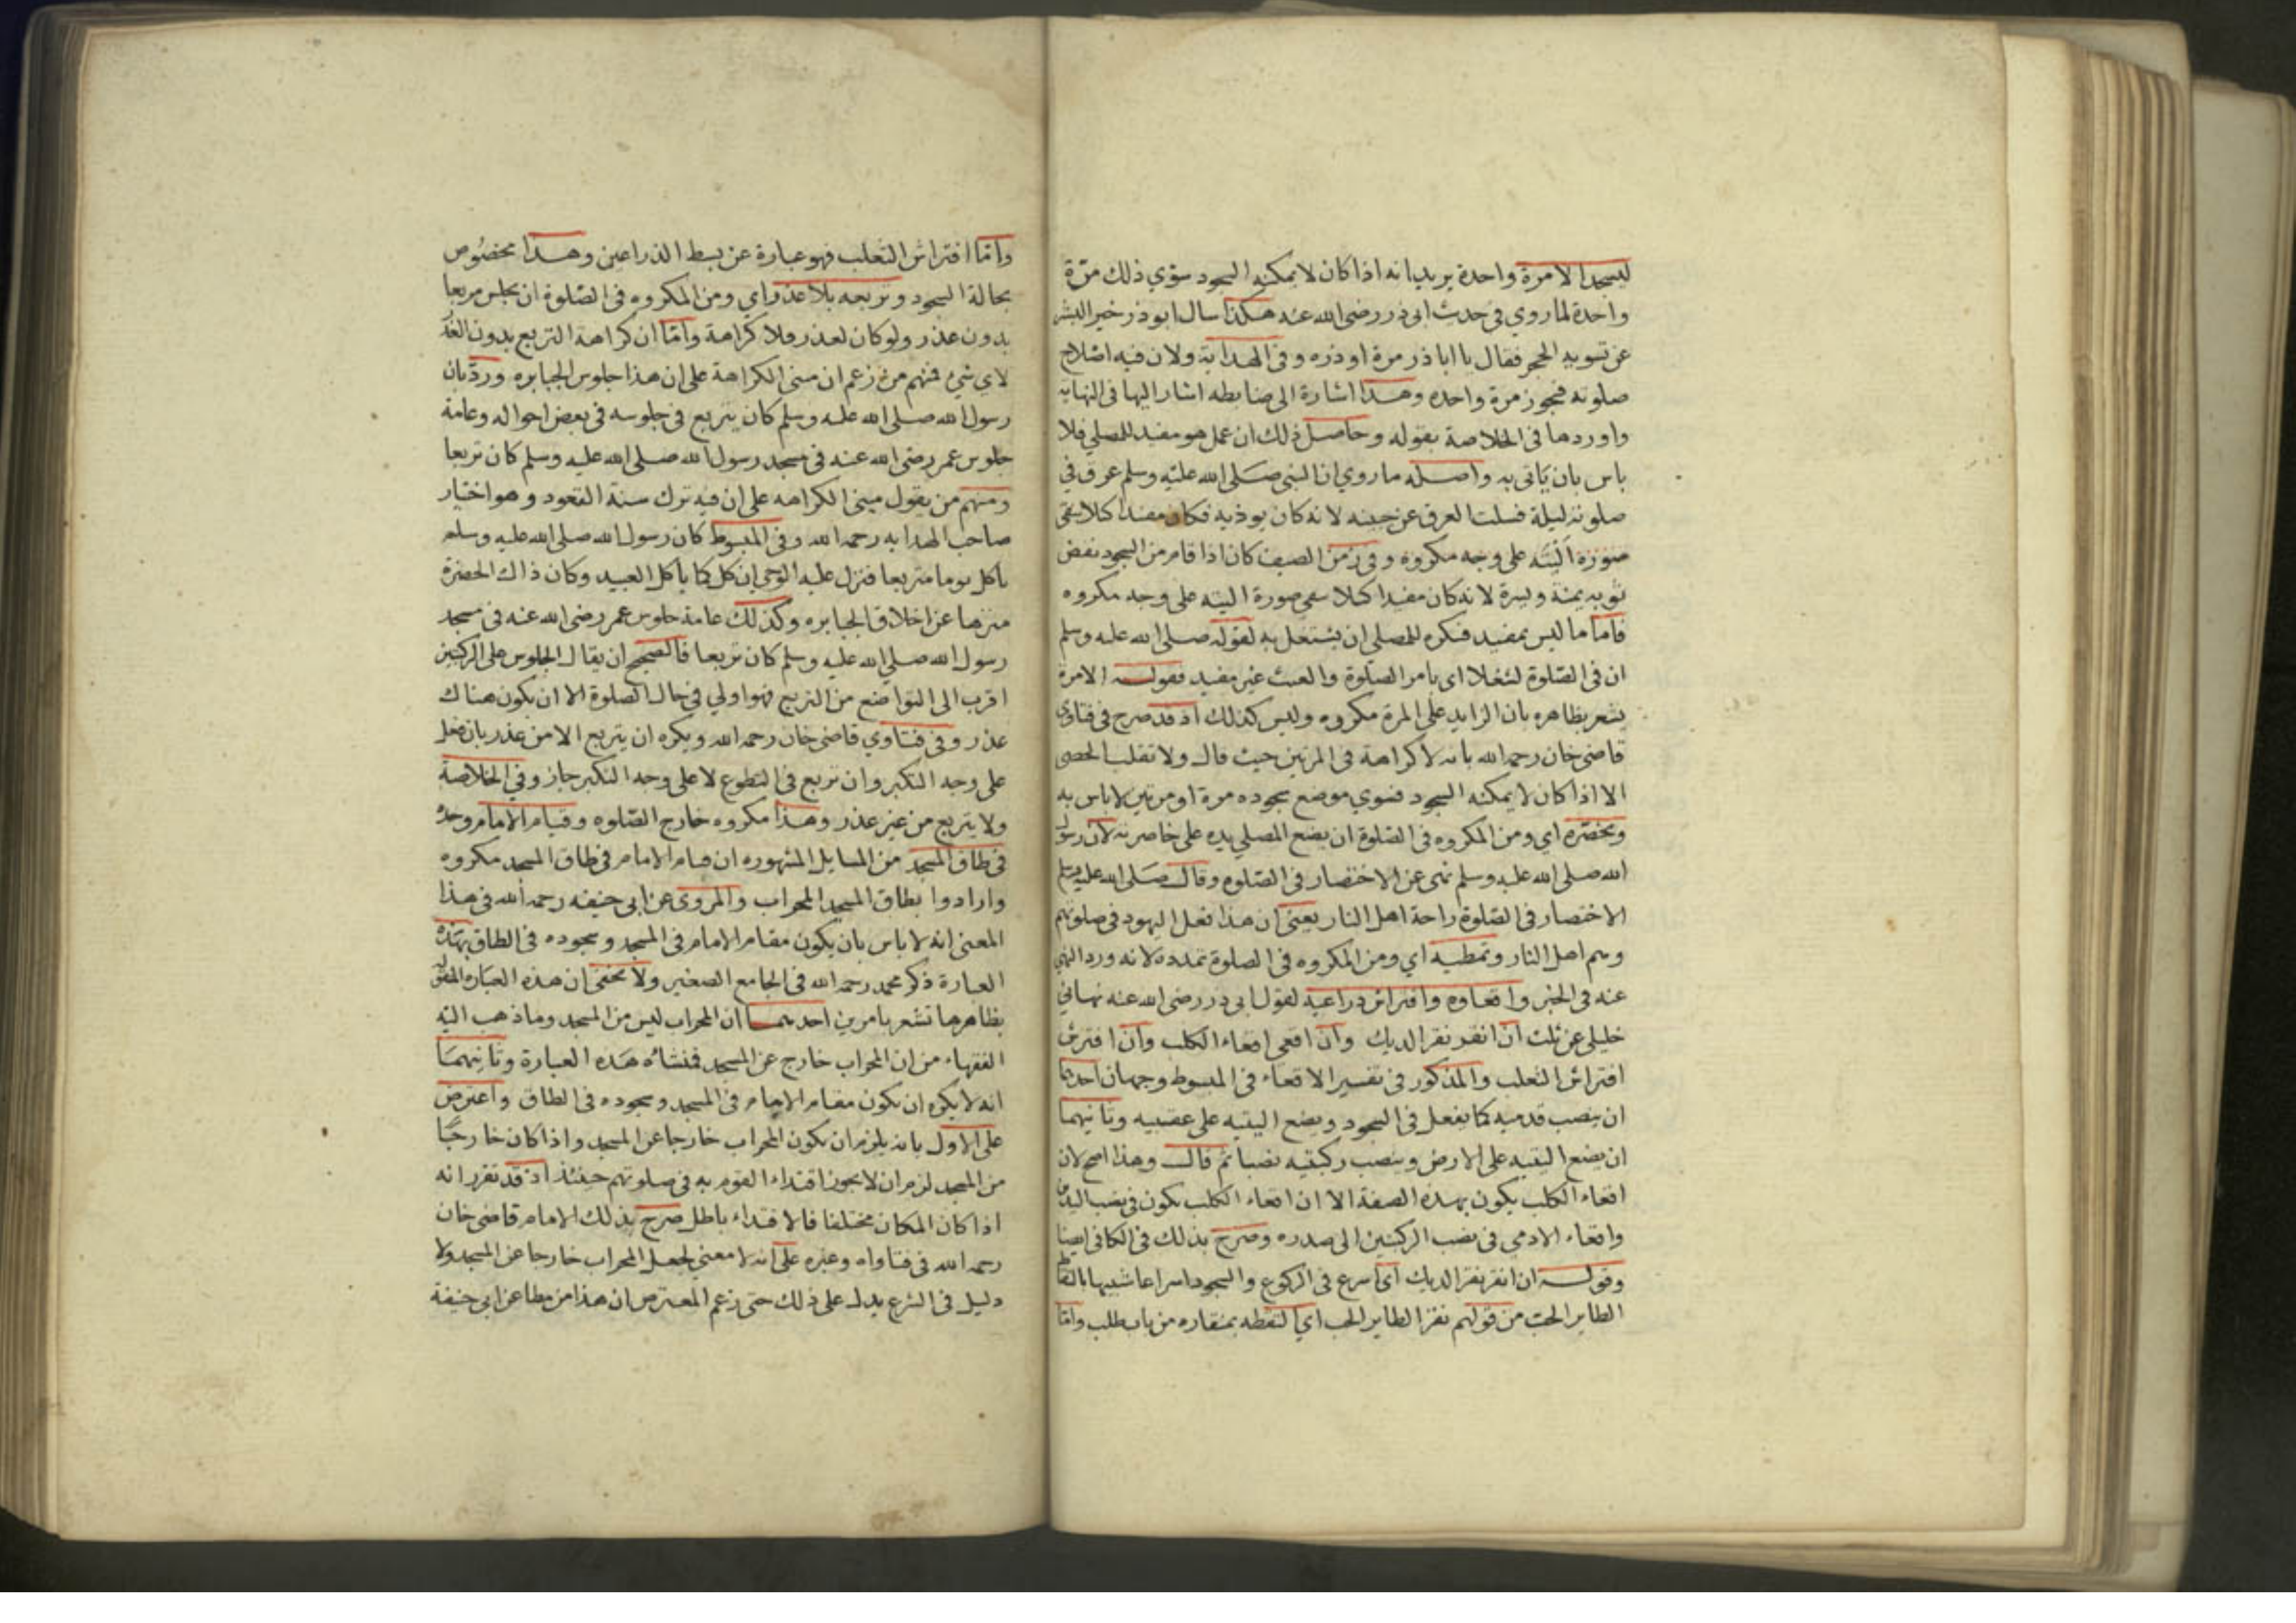 ليسجد الا مرة واحدة يريد انه اذا كان لا يمكنه السجود سوي ذلك مرّة
واحدة لما روي في حديث ابى ذر رضى الله عنه هكذا سال ابو ذر خير البشر
عن تسوية الحجر فقال يا ابا ذر مرة او ذره و فى الهداية ولان فيه اصلاح
صلوته فيجوز مرة واحده وهذا اشارة الى ضابطه اشار اليها فى النهاية
واوردها فى الخلاصة بقوله وحاصل ذلك ان عمل هو مفيد للمصلي فلا
باس بان يَاتى به واصله ما روي ان النبى صَلى الله عليه وسلم عرق في
صلوته ليلة فسلت العرق عن جبينه لانه كان يوذيه فكان مفيدا كلا يبقى
صُورة اَليَته على وجه مكروه وفى زمن الصيف كان اذا قام من السجود نفض
ثوبه يمنة ويسرة لانه كان مفيدا كيلا يبقى صورة اليته على وجه مكروه
فاما ما ليس بمفيد فيكره للمصلى ان يشتغل به لقوله صلى الله عليه وسلم
ان فى الصّلوة لشغلا اى بامر الصّلوة والعبث غير مفيد فقوله الا مرة
يشعر بظاهره بان الزايد على المرة مكروه وليس كذلك اذ قد صرح فى فتاوى
قاضى خان رحمه الله بانه لا كراهة فى المرتين حيث قال ولا تقلب الحصى
الا اذا كان لا يمكنه السجود فسوي موضع سجوده مرة او مرتين لا باس به
وتخصّره اي ومن المكروه فى الصّلوة ان يضع المصلي يده على خاصرته لان رسول
الله صلى الله عليه وسلم نهى عن الاختصار فى الصّلوه وقال صَلى الله عليه وسلم
الاختصار فى الصّلوة راحة اهل النار يعنى ان هذا فعل اليهود فى صلوتهم
وهم اهل النار وتمطيه اي ومن المكروه فى الصلوة تمدده لانه ورد النهي
عنه فى الخبر واقعاوه وافتراش ذراعيه لقول ابى ذر رضى الله عنه نهانى
خليلى عن ثلث ان انقر نقر الديك وان اقعى اقعاء الكلب وان افترش
افتراش الثعلب والمذكور فى تفسير الاقعاء فى المبسوط وجهان احدهما
ان ينصب قدميه كما يفعل فى السجود ويضع اليتيه على عقبيه وثانيهما
ان يضع اليتيه على الارض وينصب ركبتيه نصبا ثم قال وهذا اصح لان
اقعاء الكلب يكون بهذه الصفة الا ان اقعاء الكلب يكون فى نصب اليدين
واقعاء الادمى فى نصب الركبتين الى صدره وصرح بذلك فى الكافى ايضا
وقوله ان انقر نقر الديك اي اسرع فى الركوع والسجود اسراعا شبيها بالتقاط
الطاير الحبّ من قولهم نقر الطاير الحب اي التقطه بمنقاره من باب طلب وامّا
وامّا افتراش الثعلب فهو عبارة عن بسط الذراعين وهذا مخصُوص
بحالة السجود وتربعه بلا عذر اي ومن المكروه فى الصّلوة ان يجلس مربعا
بدون عذر ولو كان لعذر فلا كراهة وامّا ان كراهة التربع بدون العذر
لاي شئ فمنهم من زعم ان مبنى الكراهة على ان هذا جلوس الجبابره وردّ بان
رسول الله صلى الله عليه وسلم كان يتربع فى جلوسه فى بعض احواله وعامة
جلوس عمر رضى الله عنه فى مسجد رسول الله صلى الله عليه وسلم كان تربعا
ومنهم من يقول مبنى الكراهه على ان فيه ترك سنة القعود وهو اختيار
صاحب الهدايه رحمه الله وفى المبسوط كان رسول الله صلى الله عليه وسلم
ياكل يوما متربعا فنزل عليه الوحى ان كل كما ياكل العبيد وكان ذاك الحضرة
منزها عن اخلاق الجبابره وكذلك عامة جلوس عمر رضى الله عنه فى مسجد
رسول الله صلى الله عليه وسلم كان تربعا فالصحيح ان يقال الجلوس على الركبتين
اقرب الى التواضع من التربع فهو اولي فى حال الصلوة الا ان يكون هناك
عذر وفى فتاوي قاضى خان رحمه الله ويكره ان يتربع الا من عذر بان فعل
على وجه التكبر وان تربع فى التطوع لا على وجه التكبر جاز وفى الخلاصة
ولا يتربع من غير عذر وهذا مكروه خارج الصّلوه وقيام الامام وحده
فى طاق المسجد من المسايل المشهوره ان قيام الامام فى طاق المسجد مكروه
وارادوا بطاق المسجد المحراب والمروى عن ابى حنيفه رحمه الله فى هذا
المعنى انه لا باس بان يكون مقام الامام فى المسجد وسجوده فى الطاق بهذه
العبارة ذكر محمد رحمه الله فى الجامع الصغير ولا يخفى ان هذه العباره المنقوله
بظاهرها تشعر بامرين احدهما ان المحراب ليس من المسجد وما ذهب اليه
الفقهاء من ان المحراب خارج عن المسجد فمنشاه هَذه العبارة وثانيهمَا
انه لا يكره ان يكون مقام الامام فى المسجد وسجوده فى الطاق واعترض
على الاول بانه يلزم ان يكون المحراب خارجا عن المسجد واذا كان خارجًا
من المسجد لزم ان لا يجوز اقتداء القوم به فى صلوتهم حينئذ اذ قد تقرر انه
اذا كان المكان مختلفا فالاقتداء باطل صرح بذلك الامام قاضى خان
رحمه الله فى فتاواه وغيره على انه لا معنى لجعل المحراب خارجا عن المسجد ولا
دليل فى الشرع يدل على ذلك حتى زعم المعترض ان هذا من مطاعن ابى حنيفة